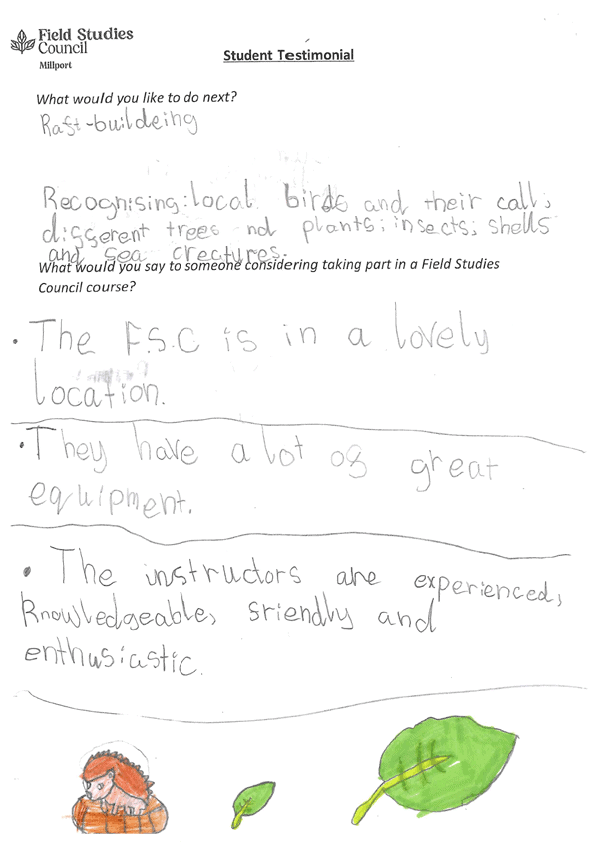 Field Studies
Council
Millport
Student Testimonial
What would you like to do next?
Raft-buildeing
Recognising: local birds and their call;
different trees nd plants; insects; shells
and sea creatures.
What would you say to someone considering taking part in a Field Studies
Council course?
• The F.S.C is in a lovely
location.
• They have a lot of great
equipment.
• The instructors are experienced,
knowledgeable, friendly and
enthusiastic.